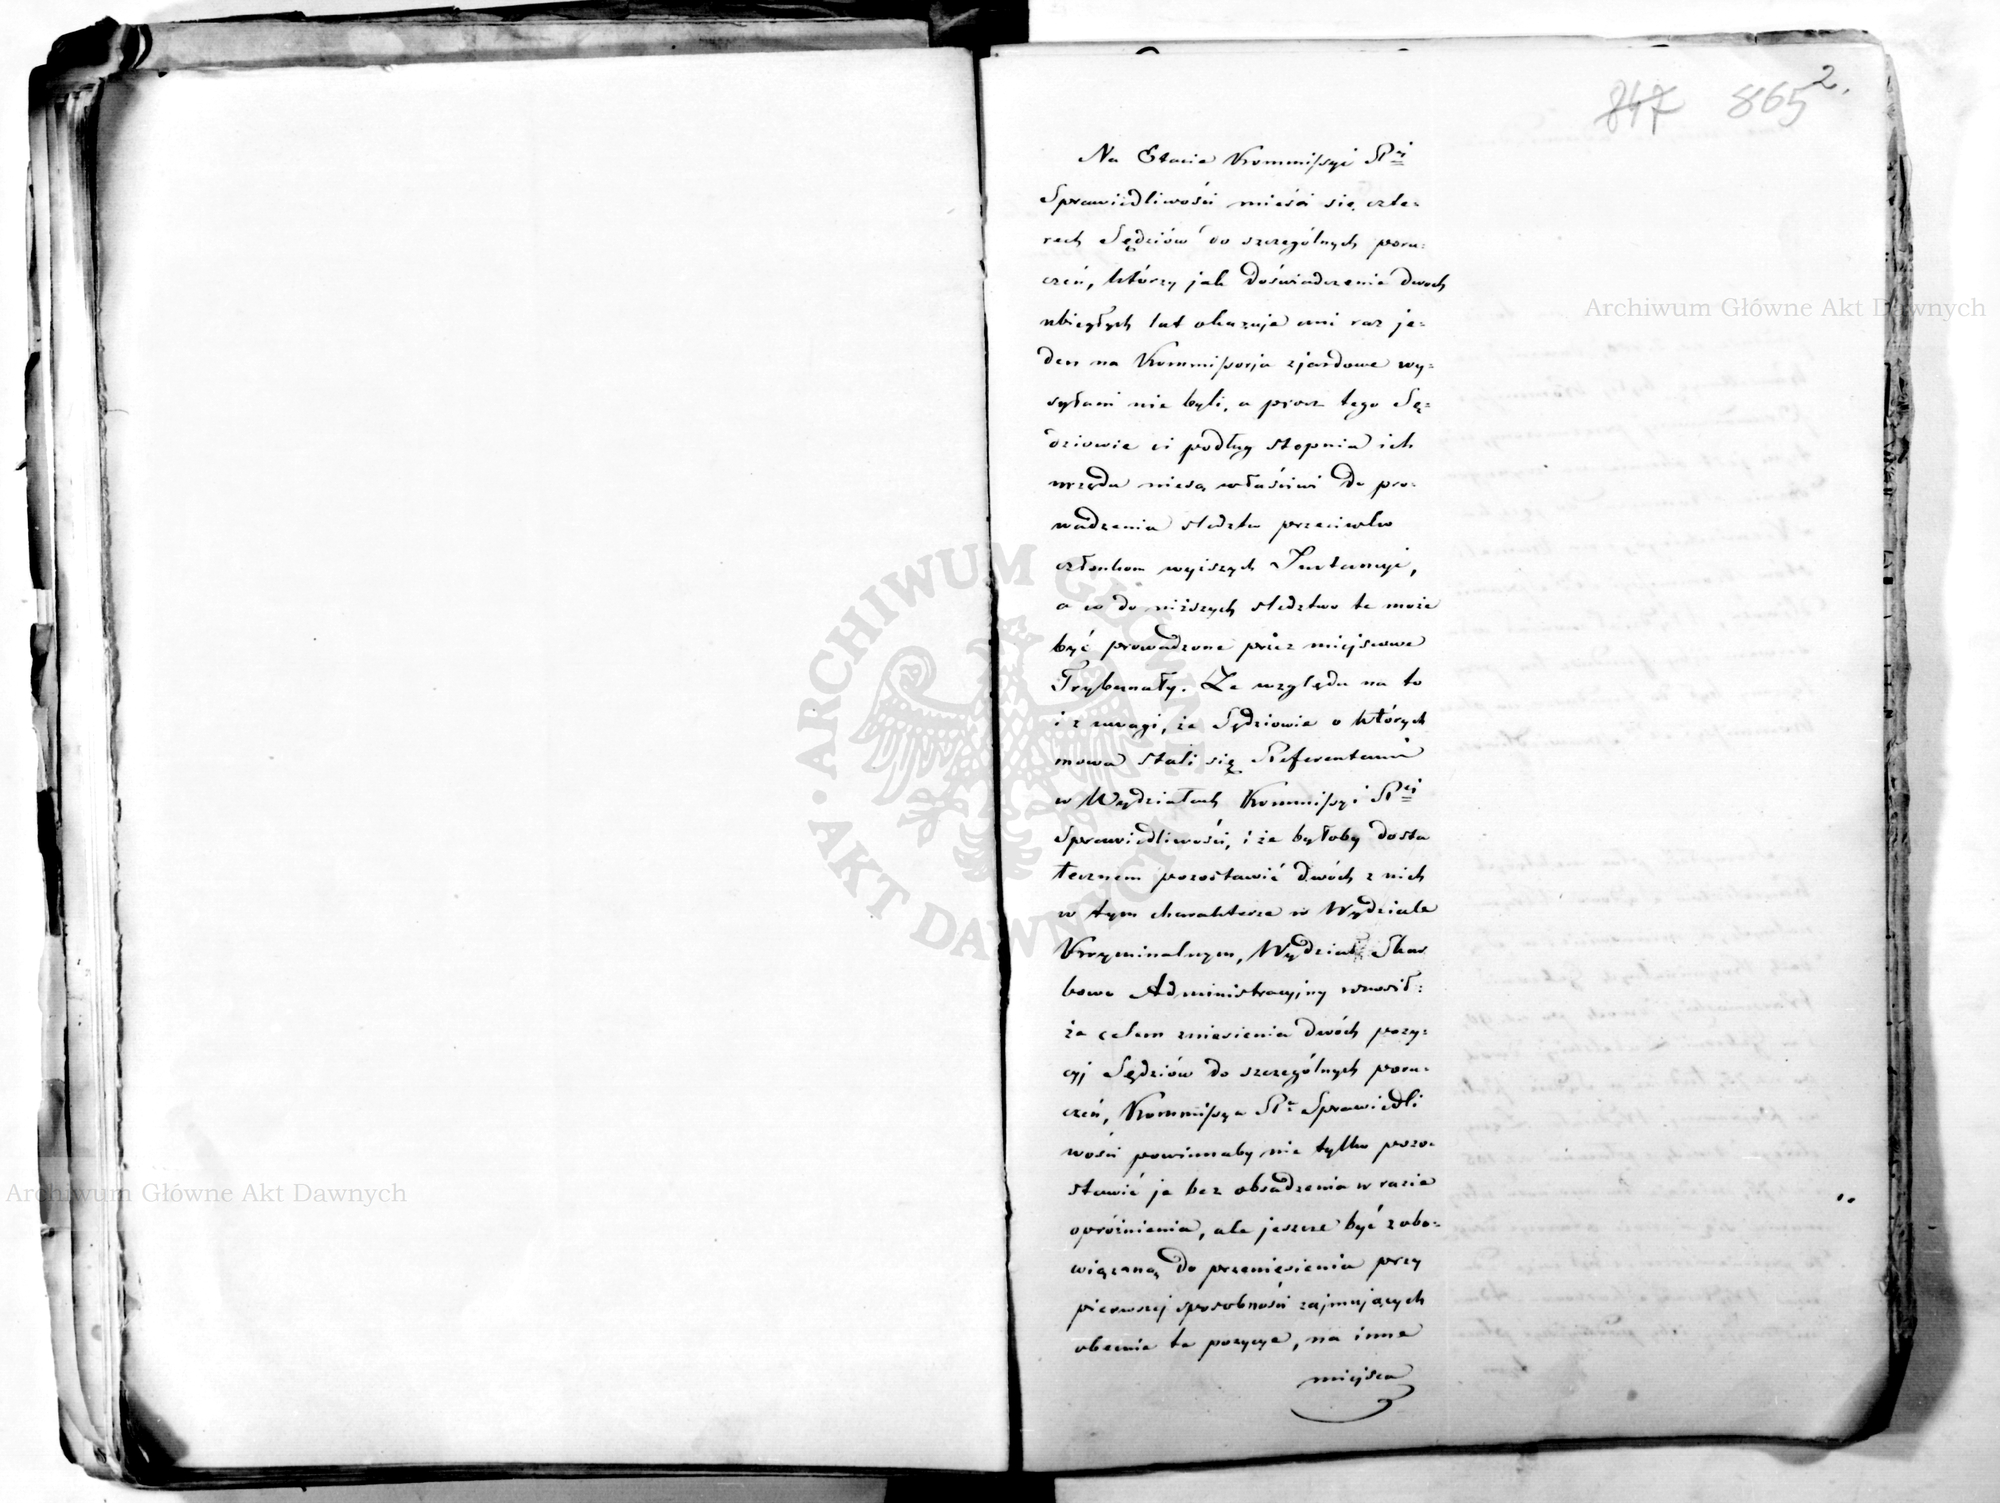 847 865 2.
Na Etacie Kommissyi R<sup>ej</sup>
Sprawiedliwości mieści się czte-
rech Sędziów do szczególnych poru-
czeń, którzy jak doświadczenie dwoch
ubiegłych lat okazuje ani raz je-
den na Kommissorja zjazdowe wy-
syłani nie byli, a prócz tego Sę-
dziowie ci podług stopnia ich
urzędu niesą właściwi do pro-
wadzenia sledztw przeciwko
członkom wyższych Instancyi,
a co do niższych sledztwo te może
być prowadzone przez miejscowe
Trybunały. Ze względu na to
i z uwagi, że Sędziowie o których
mowa stali się Referentami
w Wydziałach Kommissyi R<sup>ej</sup>
Sprawiedliwości, i że byłoby dosta
tecznem pozostawić dwóch z nich
w tym charakterze w Wydziale
Kryminalnym, Wydział Skar
bowo Administracyjny wnosił:
że celem zniesienia dwóch pozy-
cyj Sędziów do szczególnych poru-
czeń, Kommissya R<sup>a</sup> Sprawiedli
wości powinnaby nie tylko pozo-
stawić je bez obsadzenia w razie
opróżnienia, ale jeszcze być zobo-
wiązaną do przeniesienia przy
pierwszej sposobności zajmujących
obecnie te pozycye, na inne
miejsca
Archiwum Główne Akt Dawnych
Archiwum Główne Akt Dawnych
ARCHIWUM GŁÓWNE AKT DAWNYCH